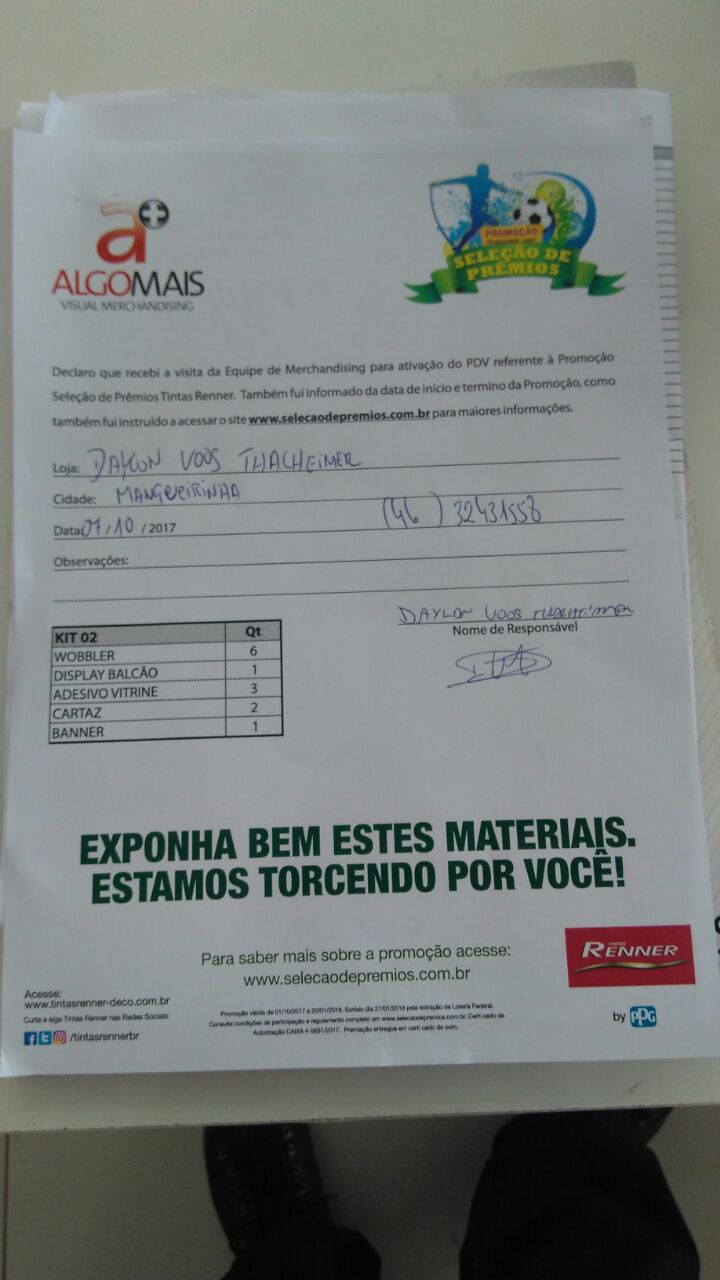 a+
ALGOMAIS
VISUAL MERCHANDISING
PROMOÇÃO
SELEÇÃO DE
PRÊMIOS
Declaro que recebi a visita da Equipe de Merchandising para ativação do PDV referente à Promoção
Seleção de Prêmios Tintas Renner. Também fui informado da data de início e termino da Promoção, como
também fui instruído a acessar o site www.selecaodepremios.com.br para maiores informações.
Loja: DAYLON VOOS THALHEIMER
Cidade: MANGUEIRINHA
Data: 07 / 10 / 2017 (46) 32431558
Observações:
DAYLON VOOS THALHEIMER
Nome de Responsável
KIT 02 Qt
WOBBLER 6
DISPLAY BALCÃO 1
ADESIVO VITRINE 3
CARTAZ 2
BANNER 1
EXPONHA BEM ESTES MATERIAIS.
ESTAMOS TORCENDO POR VOCÊ!
Para saber mais sobre a promoção acesse:
www.selecaodepremios.com.br
TINTAS
RENNER
by PPG
Acesse:
www.tintasrenner-deco.com.br
Curta e siga Tintas Renner nas Redes Sociais:
/tintasrennerbr
Promoção válida de 01/10/2017 a 20/01/2018. Sorteio dia 27/01/2018 pela extração da Loteria Federal.
Consulte condições de participação e regulamento completo em www.selecaodepremios.com.br. Certi cado de
Autorização CAIXA 4-5631/2017. Premiação entregue em certi cado de ouro.